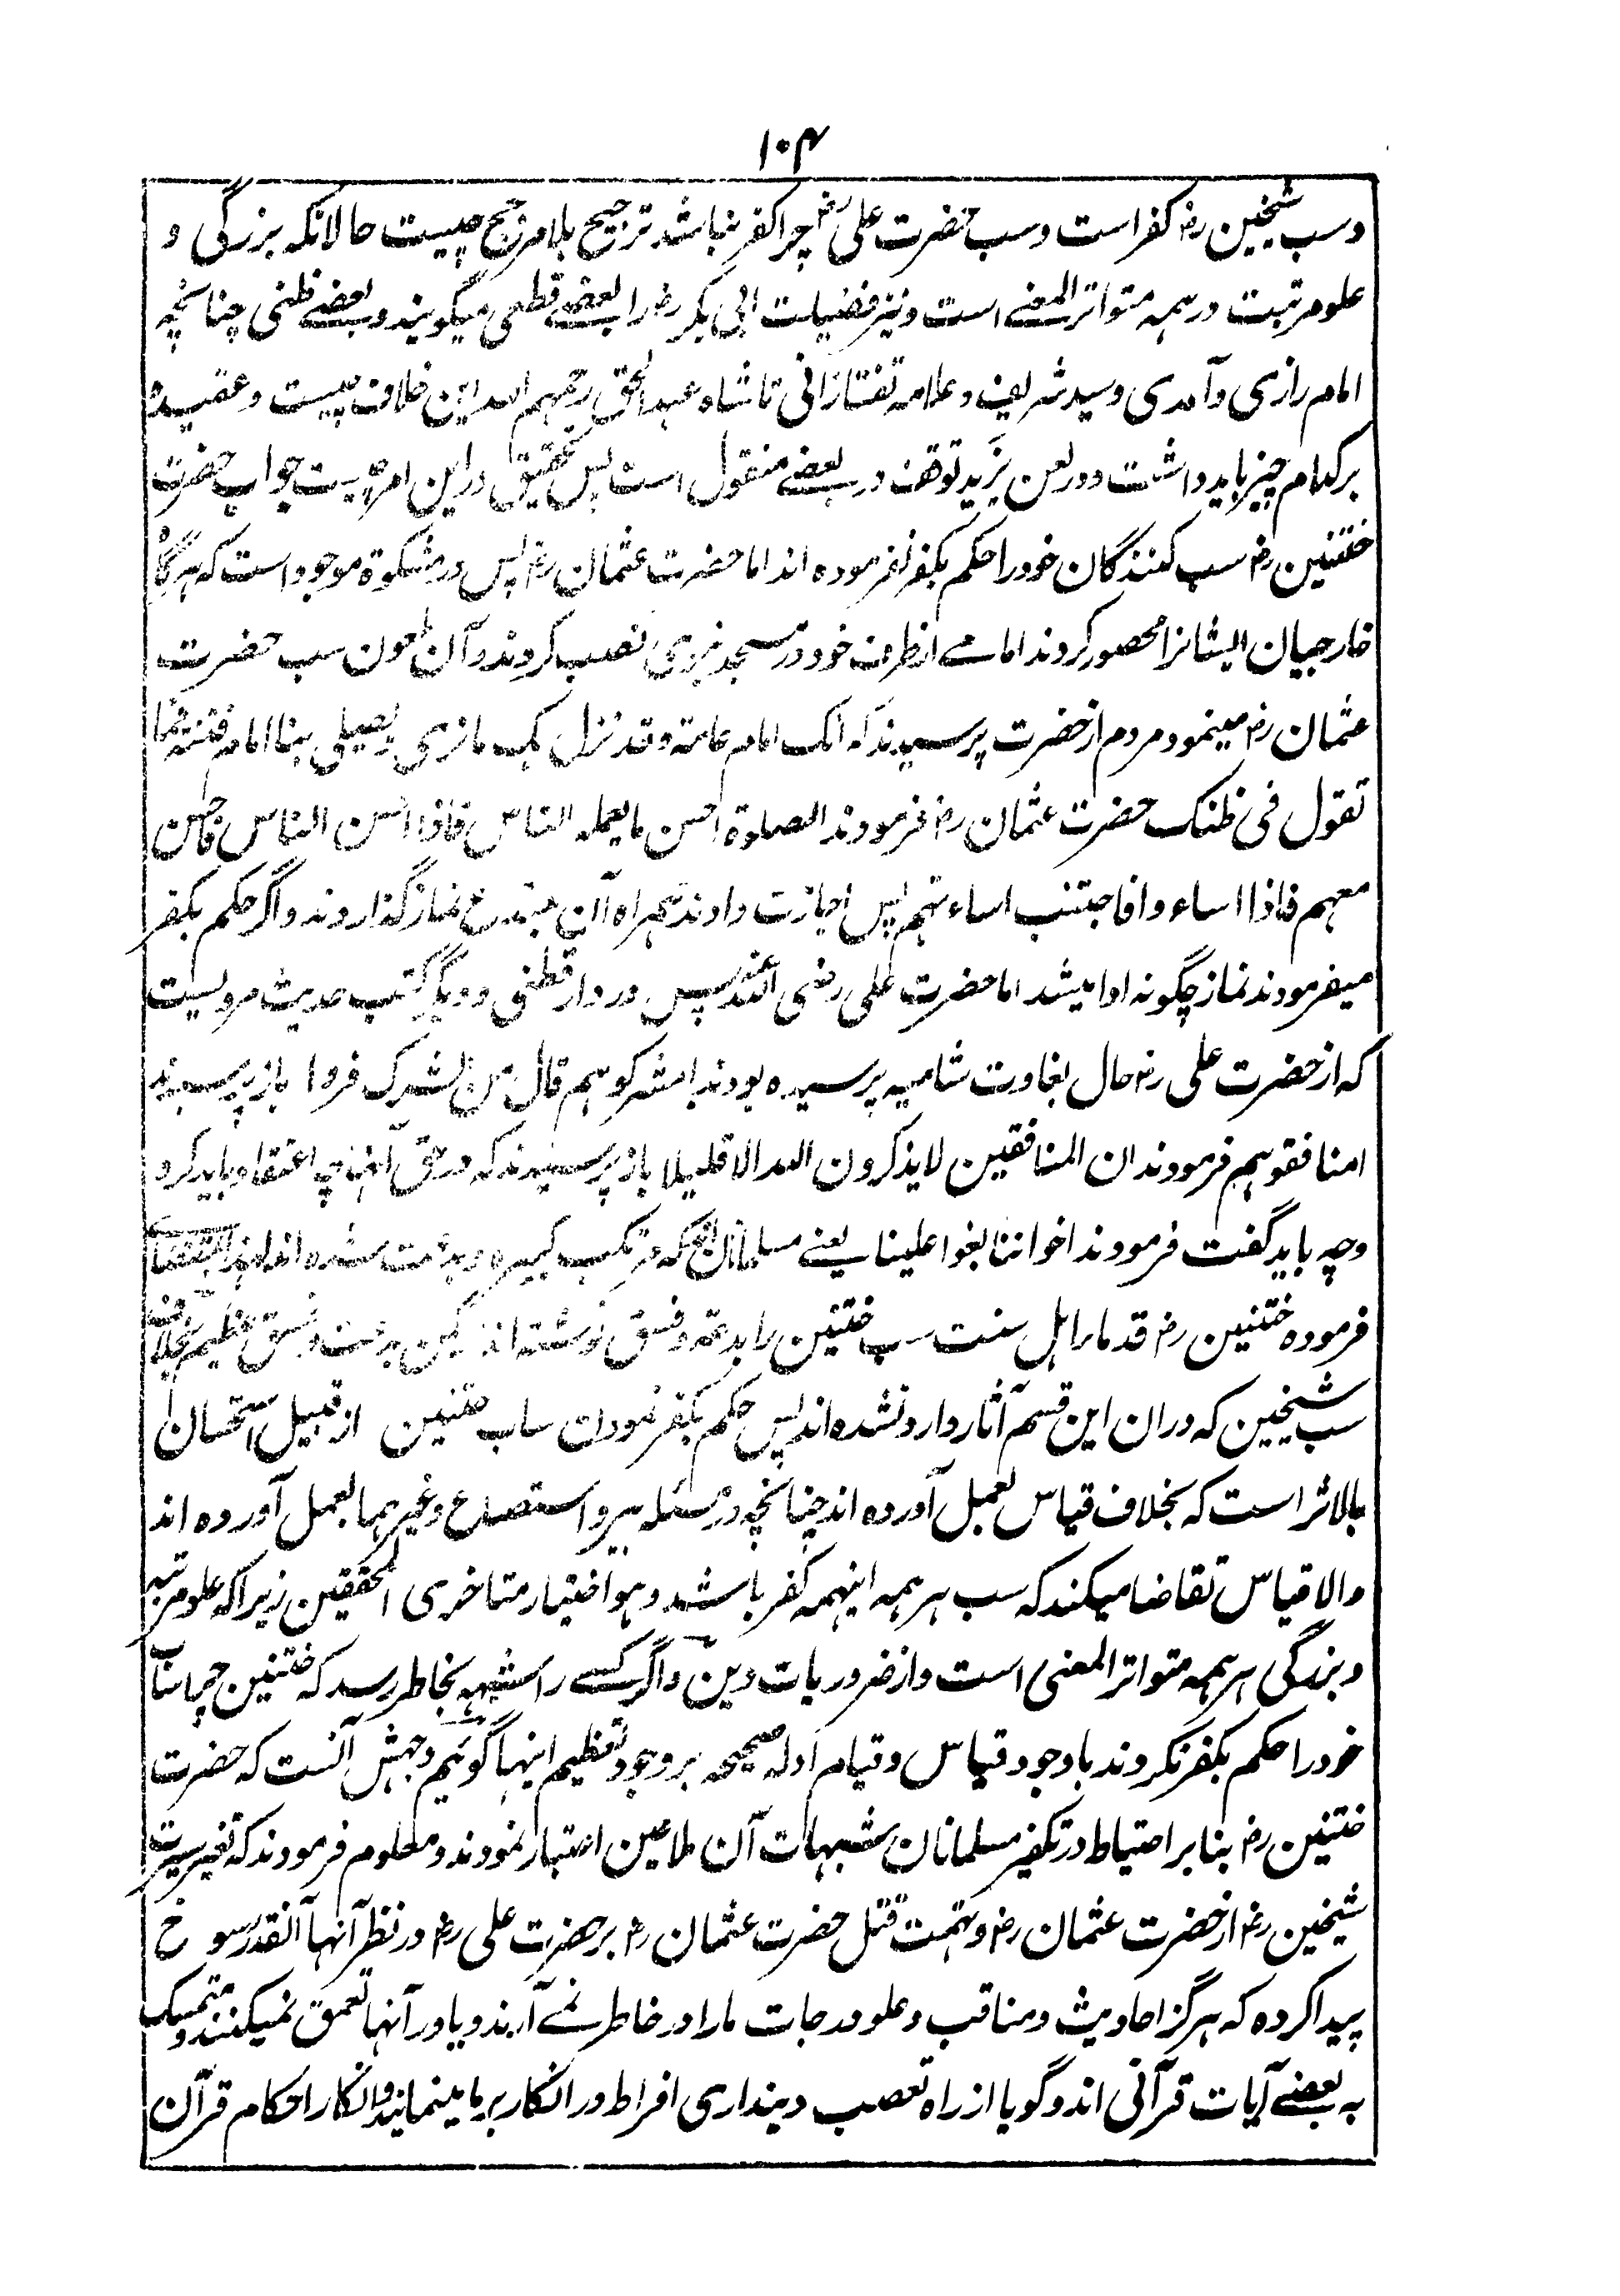 ۱۰۴
وسب شیخین رض کفر است وسب حضرت علی رض چرا کفر نباشد ترجیح بلامرجح چیست حالانکه بزرگی و
علو مرتبت در همه متواتر المعنے است و نیز فضیلت ابی بکر رض را بعضے قطعی میگویند و بعضے ظنی چنانچه
امام رازی و آمدی و سید شریف و علامه تفتازانی تا شاه عبد الحق رحمهم الله این خلاف چیست و عقیده
بر کدام چیز باید داشت و در لعن یزید توقف در بعضے منقول است پس تحقیق در این امر چیست جواب حضرت
ختنین رض سب کنندگان خود را حکم بکفر نفرموده اند اما حضرت عثمان رض پس در مشکوة موجود است که هرگاه
خارجیان ایشانرا محصور کردند امامے از طرف خود در مسجد نبوی نصب کردند و آن ملعون سب حضرت
عثمان رض مینمود مردم از حضرت پرسیدند که انک امام عامة و قد نزل بک ما تری و یصلی بنا امام فتنه فما
تقول فی ظنک حضرت عثمان رض فرمودند الصلوة احسن ما یعمله الناس فاذا احسن الناس فاحسن
معهم فاذا اساءوا فاجتنب اساءتهم پس اجازت دادند همراه آن مبتدع نماز گذاردند و اگر حکم بکفر
میفرمودند نماز چگونه ادا میشد اما حضرت علی رضی الله عنه پس در دار قطنی و دیگر کتب حدیث مرویست
که از حضرت علی رض حال بغاوت شامیه پرسیده بودند امشرکوهم قال من الشرک فروا باز پرسیدند
امنافقوهم فرمودند ان المنافقین لا یذکرون الله الا قلیلا باز پرسیدند که در حق آنها چه اعتقاد باید کرد
و چه باید گفت فرمودند اخواننا بغوا علینا یعنے مسلمانان اند که مرتکب کبیره و بدعت شده اند لهذا بمقتضای
فرموده ختنین رض قدماء اهل سنت سب ختنین را بدعة و فسق نوشته اند لیکن بدعت و فسق عظیم بخلاف
سب شیخین که در ان این قسم آثار وارد نشده اند پس حکم بکفر نمودن ساب ختنین از قبیل استحسان
بالاثر است که بخلاف قیاس بعمل آورده اند چنانچه در مسئله بیر و استصناع و غیر هما بعمل آورده اند
والا قیاس تقاضا میکند که سب هر همه اینهمه کفر باشد و هو اختیار متاخری المحققین زیرا که علو مرتبه
و بزرگی هر همه متواتر المعنی است و از ضروریات دین و اگر کسے را شبهه بخاطر رسد که ختنین چرا ساب
خود را حکم بکفر نکردند باوجود قیاس و قیام ادله صحیحه بر وجود تعظیم اینها گوئیم وجهش آنست که حضرت
ختنین رض بنا بر احتیاط در تکفیر مسلمانان شبهات آن ملاعین اعتبار نمودند و معلوم فرمودند که تغیر سیرت
شیخین رض از حضرت عثمان رض و تهمت قتل حضرت عثمان رض بر حضرت علی رض در نظر آنها آنقدر رسوخ
پیدا کرده که هرگز احادیث و مناقب و علو درجات مارا در خاطر نمے آرند و یا در آنها تعمق نمیکنند و متمسک
به بعضے آیات قرآنی اند و گویا از راه تعصب دینداری افراط در انکار بر ما مینمایند و انکار احکام قرآن